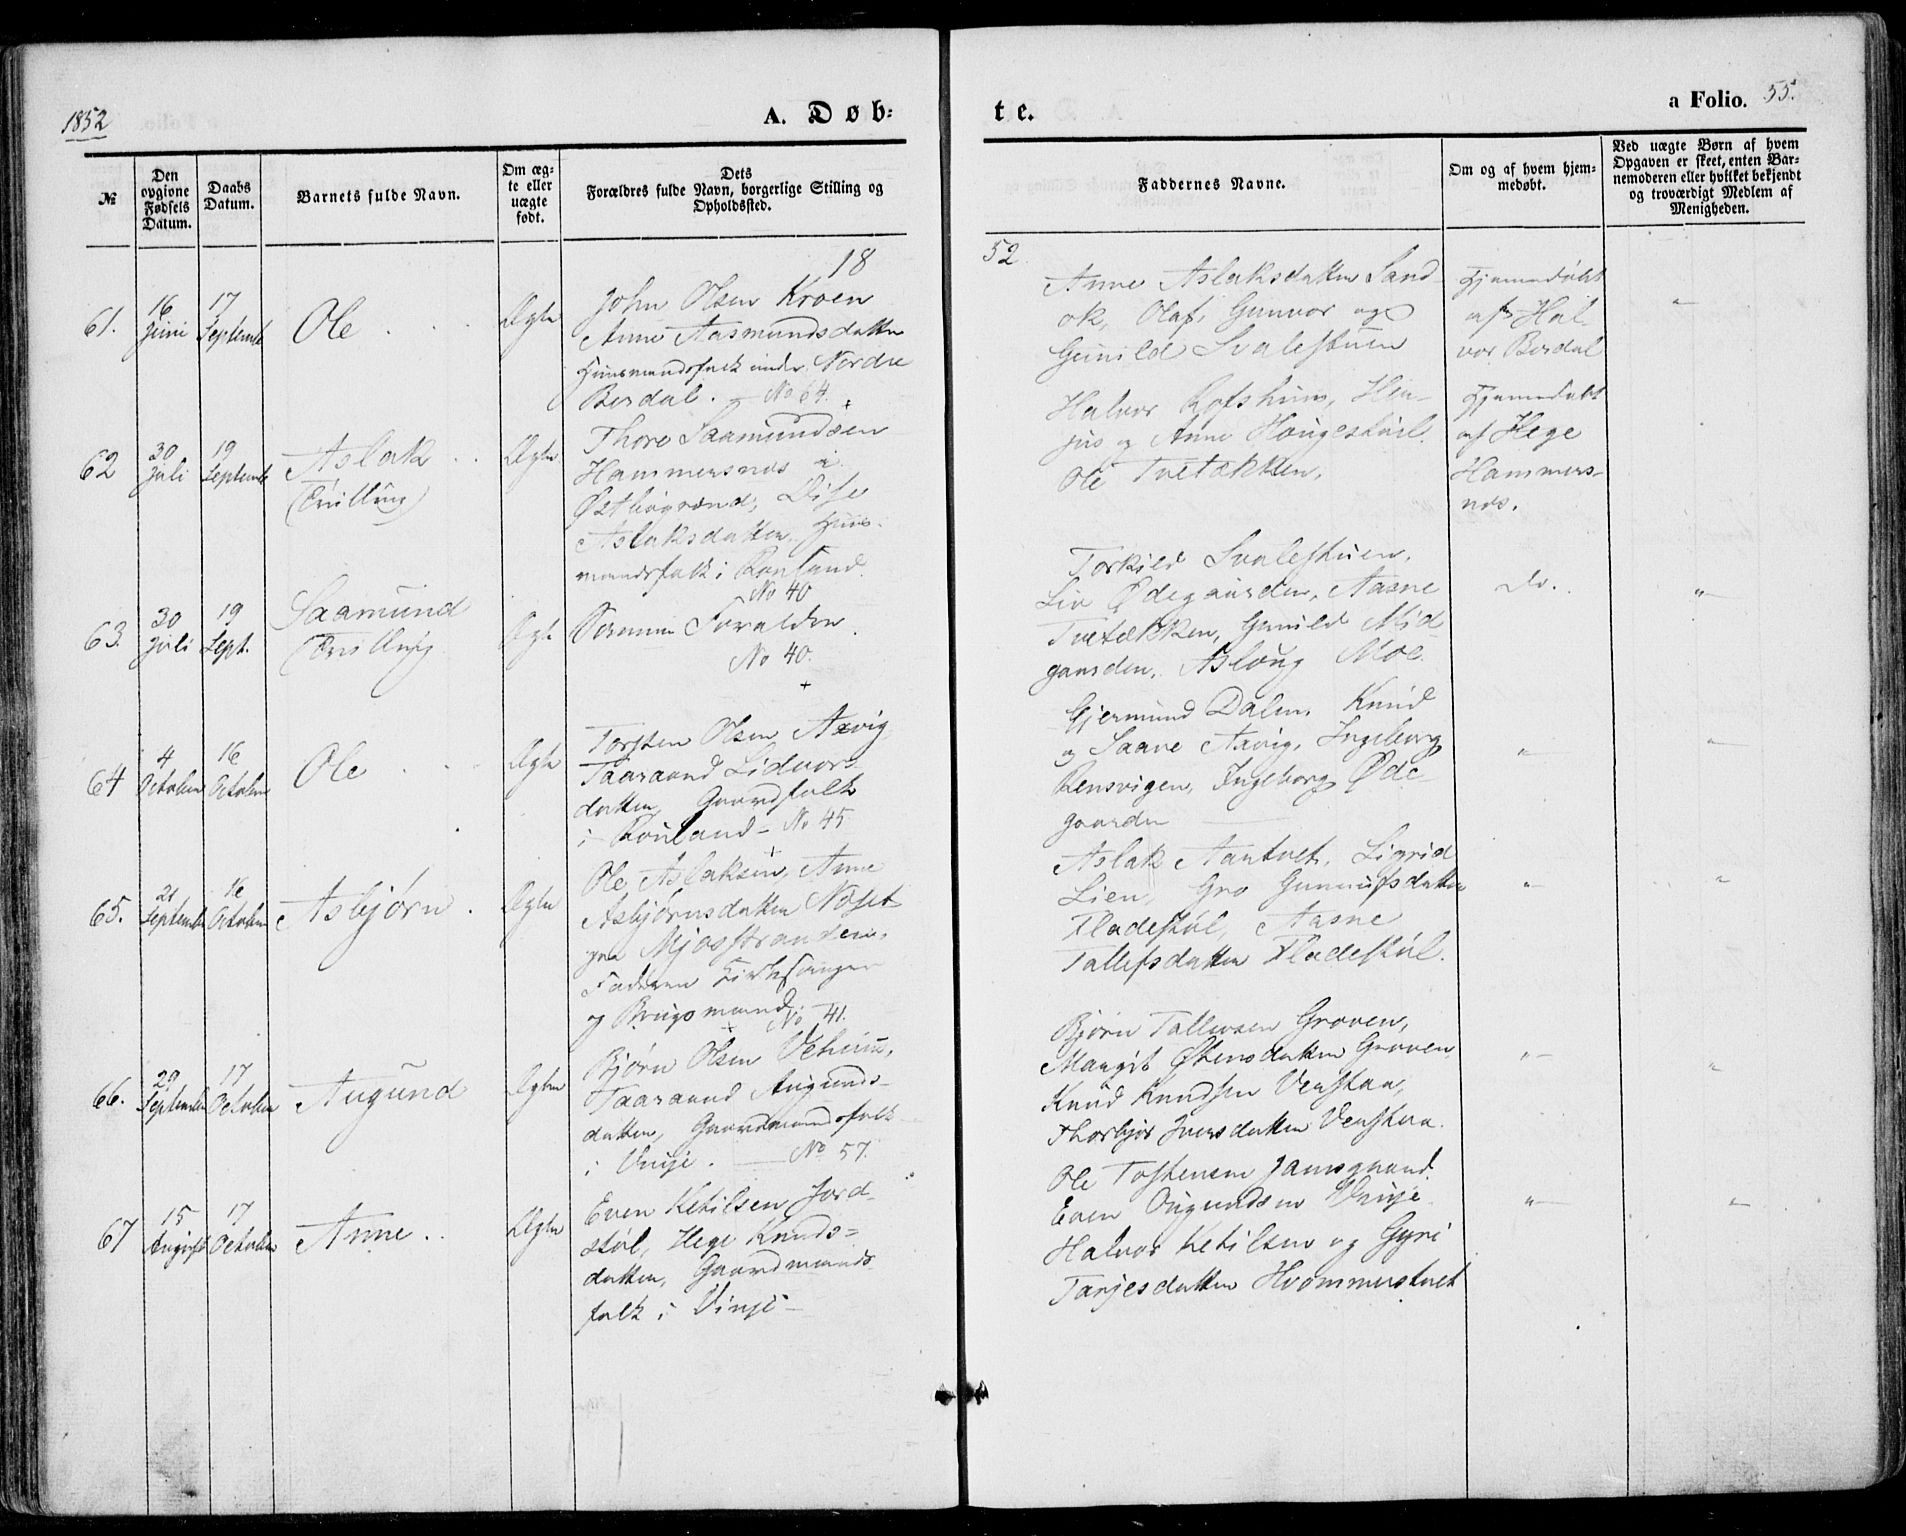 1852
A. Døb:
te.
a Folio. 55.
№
Den opgivne Fødsels Datum.
Daabs Datum.
Barnets fulde Navn.
Om ægte eller uægte født.
Dets Forældres fulde Navn, borgerlige Stilling og Opholdssted.
Faddernes Navne.
Om og af hvem hjemmedøbt.
Ved uægte Børn af hvem Opgaven er skeet, enten Barnemoderen eller hvilket bekjendt og troværdigt Medlem af Menigheden.
18
52
61.
16 Juni
17 Septembr
Ole
Ægte
John Olsen Kroen
Anne Aasmundsdatter
Huusmandsfolk under Nordre
Bordal. — No 64.
Anne Aslaksdatter Sand-
ok, Olaf, Gunvor og
Gunild Svalestuen
Hjemmedøbt
af Hal-
vor Bordal
"
62
30 Juli
19 Septembr
Aslak
(Tvilling)
Ægte
Thore Saamundsen
Hammersnos i
Østbøgrend, Dise
Aslaksdatter. Huus-
mandsfolk i Rauland.
No 40
Halvor Rofshuus,
og Anne Haugestøil.
Ole Tvetækken.
Hjemmedøbt
af Hege
Hammers-
nos.
63.
30 Juli
19 Sept.
Saamund
(Tvilling
Ægte
Samme Forældre.
No 40.
Torkild Svalestuen.
Liv Ødegaarden, Aasne
Tvetækken, Gunild Mid-
gaarden, Aslaug Moe.
Do.
"
64
4 October
16 October
Ole
Ægte
Torsten Olsen Axvig
Taaraand Lidvors-
datter, Gaardfolk
i Rauland - No 45
Gjermund Dalen, Knud
og Saave Axvig, Ingeborg
Rensvigen, Ingeborg Øde-
gaarden
"
"
65.
21 September
16 October
Asbjørn
Ægte
Ole Aslaksen, Anne
Asbjørnsdatter Noset
paa Mjosstranden.
Faderen Kirkesanger
og Brugsmand No 41.
Aslak Aantvet, Sigrid
Lien, Gro Gunnufsdatter
Fladestøl, Aasne
Tallefsdatter Fladestøl.
"
"
66.
29 September
17 October
Augund
Ægte
Bjørn Olsen Vehuus,
Taaraand Augunds-
datter, Gaardmandsfolk
i Vinje. — No 57.
Bjørn Tallevsen Groven,
Margit Østensdatter Groven
Knud Knudsen Venstaa,
Thorbjør Iversdatter Venstaa.
"
"
67
15 August
17 October
Anne
Ægte
Even Ketilsen Jord-
støl, Hege Knuds-
datter, Gaardmands-
folk i Vinje -
Ole Tostensen Jamsgaard.
Even Ougundsen Vinje
Halvor Ketilsen og Gyri
Tarjesdatter Hvommerstvet
"
"